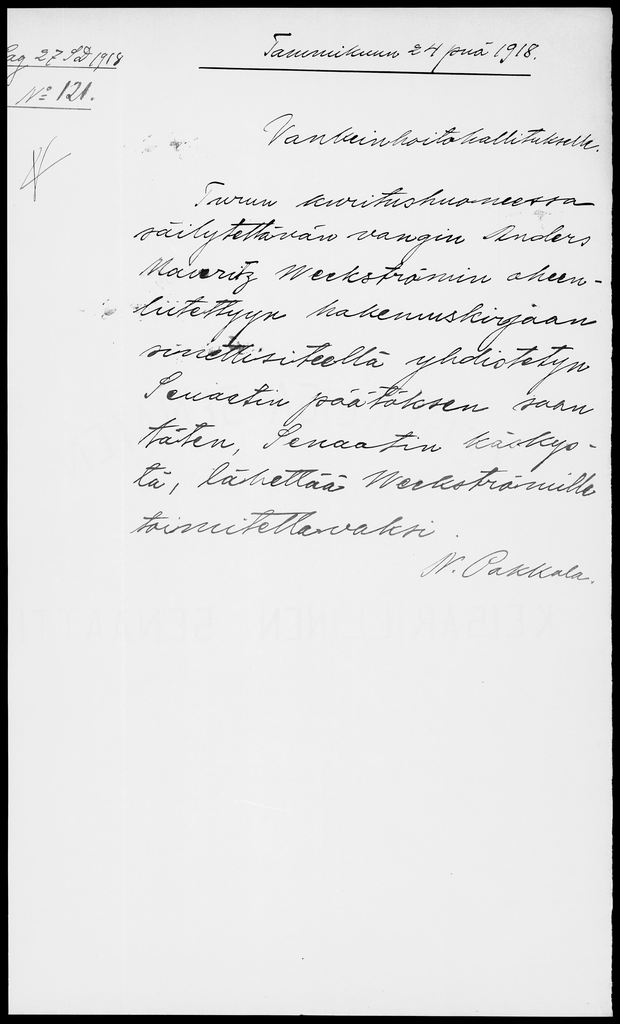 27 SD 1918
No 121.
Tammikuun 24 pnä 1918.
Vankeinhoitohallitukselle.
Turun kuritushuoneessa
säilytettävän vangin Anders
Mauritz Weckströmin oheen-
liitettyyn hakemuskirjaan
sinettisiteellä yhdistetyn
Senaatin päätöksen saan
täten, Senaatin käskys-
tä, lähettää Weckströmille
toimitettavaksi.
N. Pakkala.
KEISARILLINEN SENAATTI